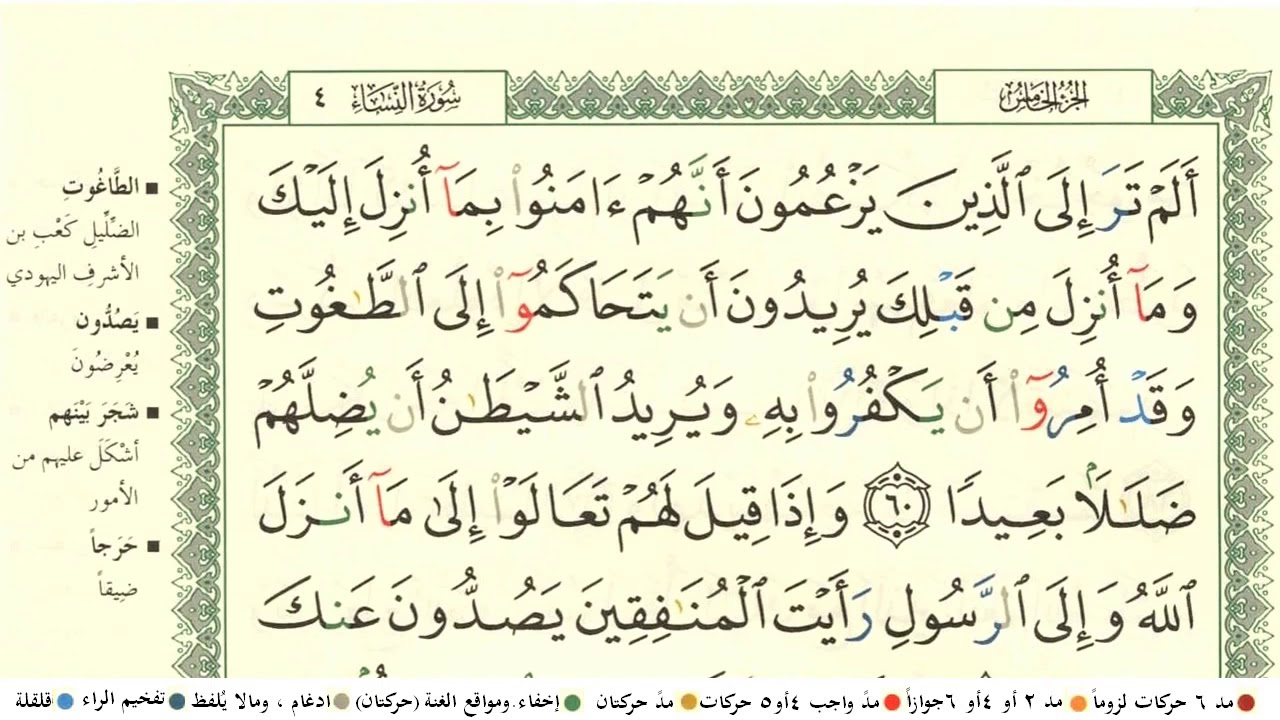 الجزء الخامس
سورة النساء ٤
أَلَمْ تَرَ إِلَى ٱلَّذِينَ يَزْعُمُونَ أَنَّهُمْ ءَامَنُوا۟ بِمَآ أُنزِلَ إِلَيْكَ
وَمَآ أُنزِلَ مِن قَبْلِكَ يُرِيدُونَ أَن يَتَحَاكَمُوٓا۟ إِلَى ٱلطَّٰغُوتِ
وَقَدْ أُمِرُوٓا۟ أَن يَكْفُرُوا۟ بِهِۦ وَيُرِيدُ ٱلشَّيْطَٰنُ أَن يُضِلَّهُمْ
ضَلَٰلًۢا بَعِيدًا ٦٠ وَإِذَا قِيلَ لَهُمْ تَعَالَوْا۟ إِلَىٰ مَآ أَنزَلَ
ٱللَّهُ وَإِلَى ٱلرَّسُولِ رَأَيْتَ ٱلْمُنَٰفِقِينَ يَصُدُّونَ عَنكَ
■ الطَّاغُوتِ
الضِّلِّيلِ كَعْبِ بن
الأشرفِ اليهودي
■ يَصُدُّون
يُعْرِضُونَ
■ شَجَرَ بَيْنَهم
أَشْكَلَ عليهم من
الأمور
■ حَرَجاً
ضِيقاً
مد ٦ حركات لزوماً مد ٢ أو ٤ أو ٦ جوازاً مدّ واجب ٤ أو ٥ حركات مدّ حركتان إخفاء. ومواقع الغنة (حركتان) ادغام ، ومالا يُلفظ تفخيم الراء قلقلة